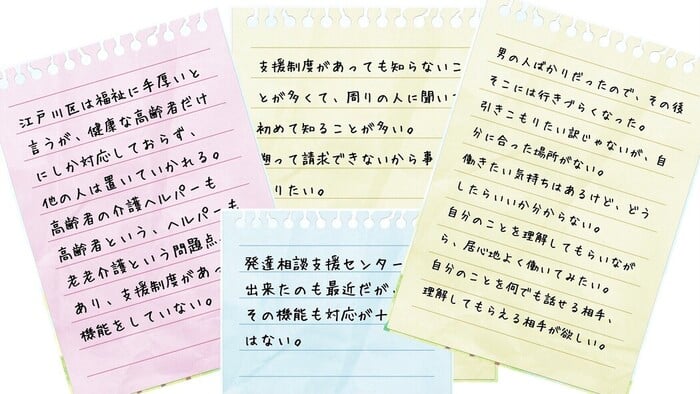 江戸川区は福祉に手厚いと
言うが、健康な高齢者だけ
にしか対応しておらず、
他の人は置いていかれる。
高齢者の介護ヘルパーも
高齢者という、ヘルパーも
老老介護という問題点
あり、支援制度があっ
機能をしていない。
支援制度があっても知らないこ
とが多くて、周りの人に聞い
初めて知ることが多い。
って請求できないから事
りたい。
発達相談支援センター
出来たのも最近だが、
その機能も対応が十
はない。
男の人ばかりだったので、その後
そこには行きづらくなった。
引きこもりたい訳じゃないが、自
分に合った場所がない。
働きたい気持ちはあるけど、どう
したらいいか分からない。
自分のことを理解してもらいなが
ら、居心地よく働いてみたい。
自分のことを何でも話せる相手、
理解してもらえる相手が欲しい。